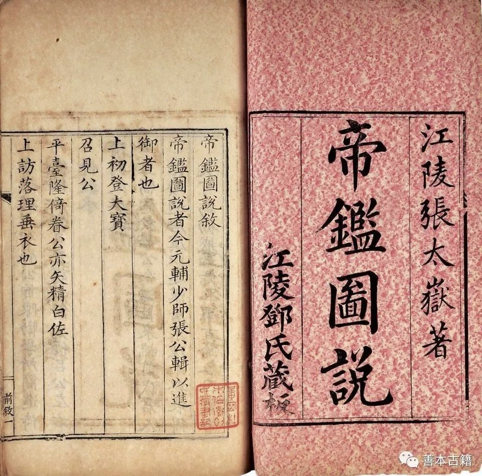 江陵張太嶽著
帝鑑圖說
江陵鄧氏藏板
帝鑑圖說敘
帝鑑圖說者今元輔少師張公輯以進
御者也
上初登大寶
召見公
平臺隆倚眷公亦矢精白佐
上訪落理垂衣也
前敘一
善本古籍